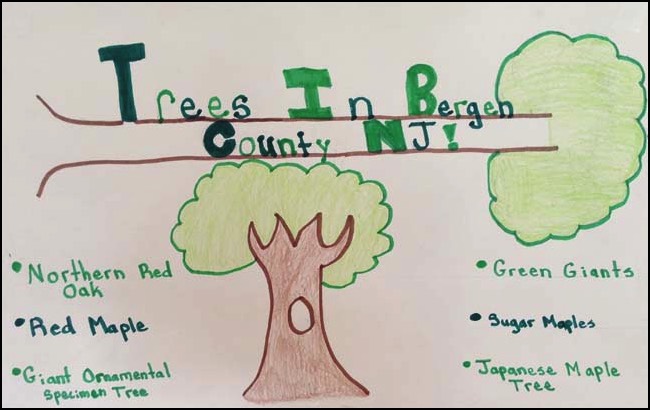 Trees In Bergen
County NJ!
• Northern Red
Oak
• Red Maple
• Giant Ornamental
Specimen Tree
• Green Giants
• Sugar Maples
• Japanese Maple
Tree